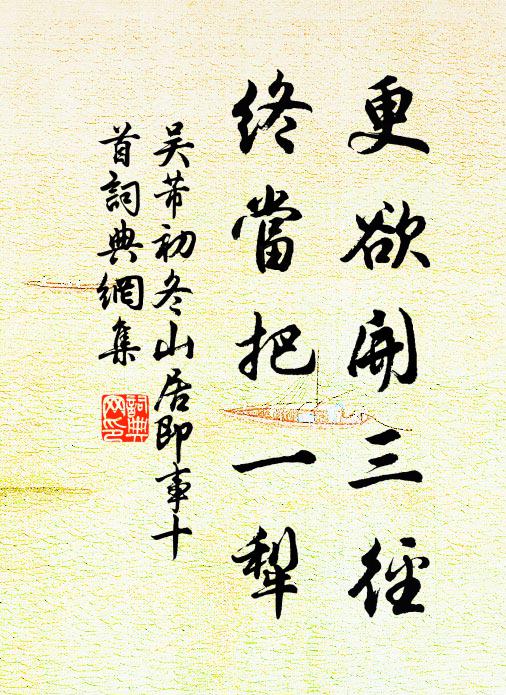 更欲開三徑
終當把一犁
吳芾初冬山居即事十
首詞典網集
詞典
网印